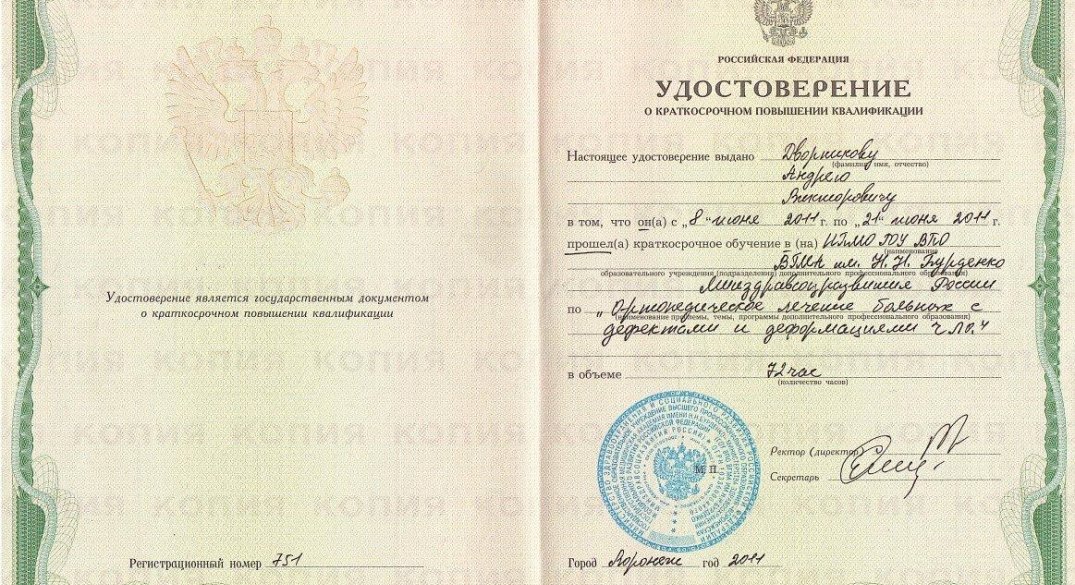 Удостоверение является государственным документом
о краткосрочном повышении квалификации
Регистрационный номер 751
РОССИЙСКАЯ ФЕДЕРАЦИЯ
УДОСТОВЕРЕНИЕ
О КРАТКОСРОЧНОМ ПОВЫШЕНИИ КВАЛИФИКАЦИИ
Настоящее удостоверение выдано Дворникову
(фамилия, имя, отчество)
Андрею
Викторовичу
в том, что он(а) с „8“ июне 2011 г. по „21“ июня 2011 г.
прошел(а) краткосрочное обучение в (на) ИПМО ГОУ ВПО
(наименование
ВГМА им. Н.Н. Бурденко
образовательного учреждения (подразделения) дополнительного профессионального образования)
Минздравсоцразвития России
по „Ортопедическое лечение больных с
(наименование проблемы, темы, программы дополнительного профессионального образования)
дефектами и деформациями ЧЛО“
в объеме 72 час
(количество часов)
М.П.
Ректор (директор)
Секретарь
Город Воронеж год 2011
КОПИЯ